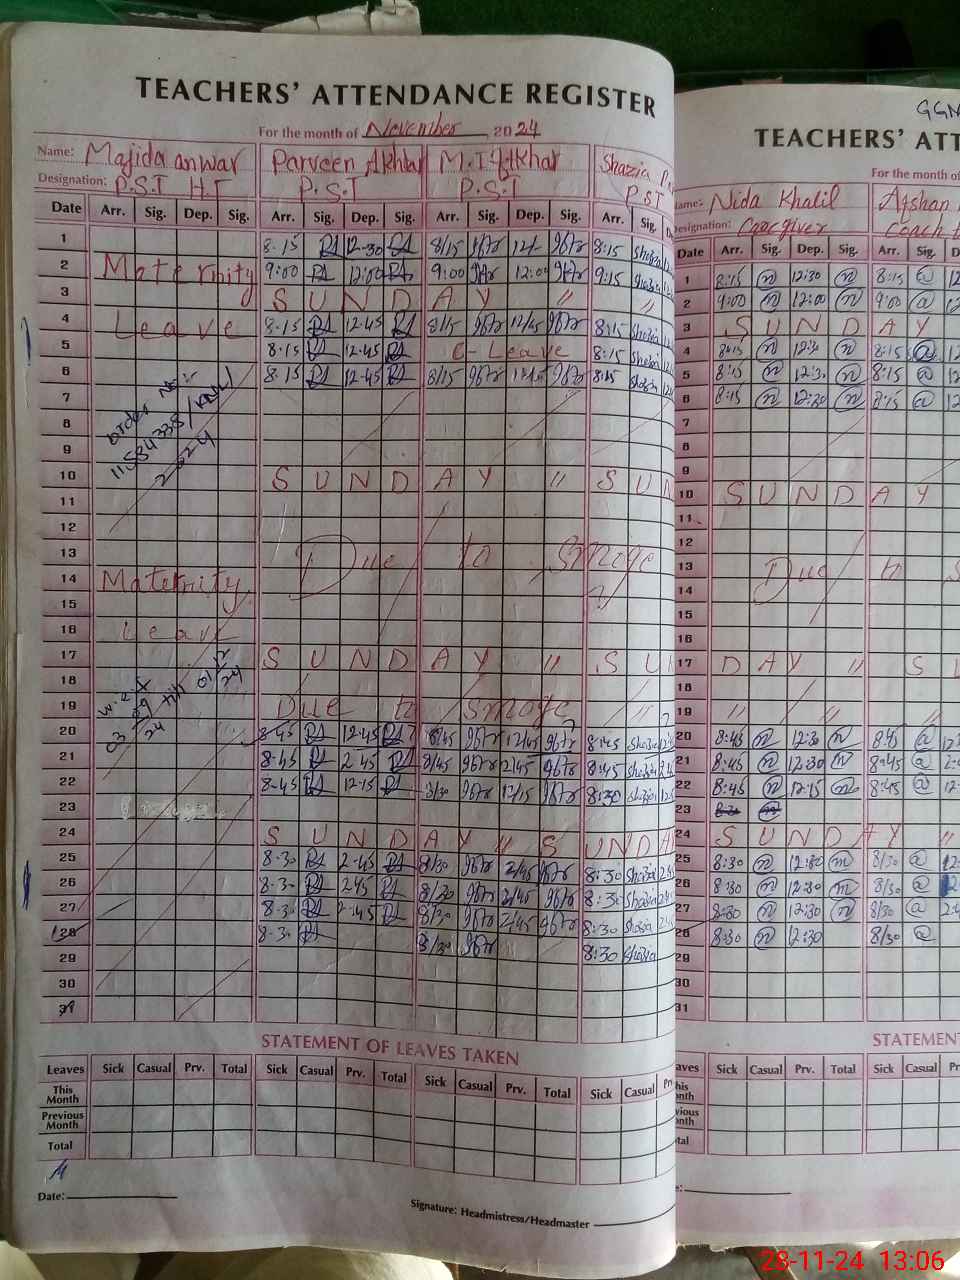 TEACHERS' ATTENDANCE REGISTER
For the month of November, 2024
Name: Majida anwar Parveen Akhtar M.Iftkhar Shazia
Designation: P.S.T H.T P.S.T P.S.T PST
Date Arr. Sig. Dep. Sig. Arr. Sig. Dep. Sig. Arr. Sig. Dep. Sig. Arr. Sig.
1 8-15 12-30 8/15 12/- 8:15 Shazia
2 Maternity 9:00 12:00 9:00 12:00 9:15 Shazia
3 SUNDAY " "
4 Leave 8-15 12-45 8/15 12/45 8:15 Shazia
5 8-15 12-45 C-Leave 8:15 Shazia
6 8-15 12-45 8/15 8:15 Shazia
order No:-
7
8
9
10 SUNDAY " SUN
11
12
13 Due to Smoge
14 Maternity
15
16 Leave
17 SUNDAY " SUN
18
w.e.f
03 09 24 till 01 12 24
19 Due to Smoge "
20 8-45 12-45 8/45 12/45 8:45 Shazia
21 8-45 2-45 8/45 2/45 8:45 Shazia
22 8-45 12-15 8/30 12/15 8:30 Shazia
23
24 SUNDAY " SUNDA
25 8-30 2-45 8/30 2/45 8:30 Shazia
26 8-30 245 8/30 2/45 8:30 Shazia
27 8-30 2-45 8/30 2/45 8:30 Shazia
28 8-30 8/30 8:30 Shazia
29
30
31
STATEMENT OF LEAVES TAKEN
Leaves Sick Casual Prv. Total Sick Casual Prv. Total Sick Casual Prv. Total Sick Casual
This Month
Previous Month
Total
Date:
Signature: Headmistress/Headmaster
TEACHERS' ATT
For the month of
Name: Nida Khalil Afshan
Designation: Caregiver Coach
Date Arr. Sig. Dep. Sig. Arr. Sig. D
1 8:15 12:30 8:15
2 9:00 12:00 9:00
3 SUNDAY
4 8:15 12:30 8:15
5 8:15 12:30 8:15
6 8:15 12:30 8:15
7
8
9
10 SUNDAY
11
12
13 Due to S
14
15
16
17 DAY " S
18
19 " " "
20 8:45 12:30 8:45
21 8:45 12:30 8:45
22 8:45 12:15 8:45
23 8:30
24 SUNDAY "
25 8:30 8/30
26 8:30 12:30 8/30
27 8:30 12:30 8/30
28 8:30 12:30 8/30
29
30
31
STATEMENT
aves Sick Casual Prv. Total Sick Casual Pr
his onth
vious onth
tal
28-11-24 13:06